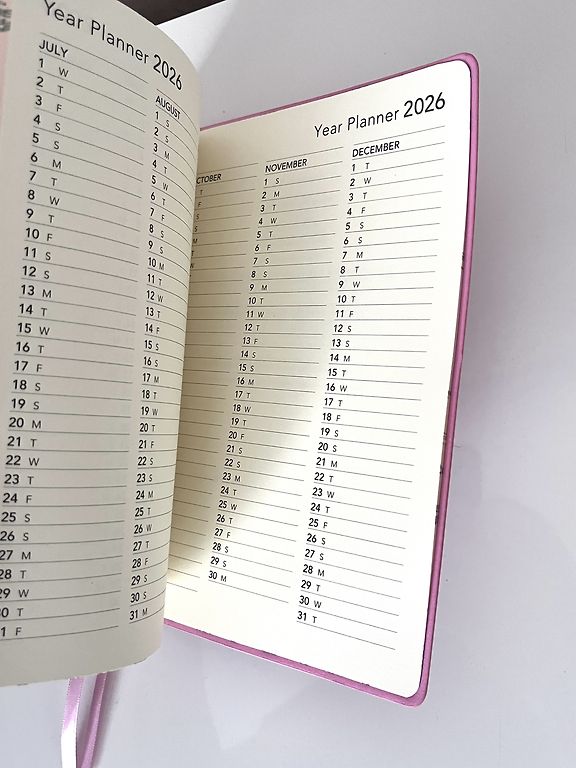 Year Planner 2026
JULY
1 W
2 T
3 F
4 S
5 S
6 M
7 T
8 W
9 T
10 F
11 S
12 S
13 M
14 T
15 W
16 T
17 F
18 S
19 S
20 M
21 T
22 W
23 T
24 F
25 S
26 S
27 M
28 T
29 W
30 T
31 F
AUGUST
1 S
2 S
3 M
4 T
5 W
6 T
7 F
8 S
9 S
10 M
11 T
12 W
13 T
14 F
15 S
16 S
17 M
18 T
19 W
20 T
21 F
22 S
23 S
24 M
25 T
26 W
27 T
28 F
29 S
30 S
31 M
Year Planner 2026
CTOBER
T
F
S
S
M
W
NOVEMBER
1 S
2 M
3 T
4 W
5 T
6 F
7 S
8 S
9 M
10 T
11 W
12 T
13 F
14 S
15 S
16 M
17 T
18 W
19 T
20 F
21 S
22 S
23 M
24 T
25 W
26 T
27 F
28 S
29 S
30 M
DECEMBER
1 T
2 W
3 T
4 F
5 S
6 S
7 M
8 T
9 W
10 T
11 F
12 S
13 S
14 M
15 T
16 W
17 T
18 F
19 S
20 S
21 M
22 T
23 W
24 T
25 F
26 S
27 S
28 M
29 T
30 W
31 T